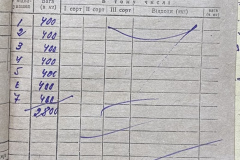 у тому числі
вага (кг)
I сорт II сорт III сорт Відходи (кг)
1 400
2 400
3 400
4 400
5 400
6 400
7 400
2800